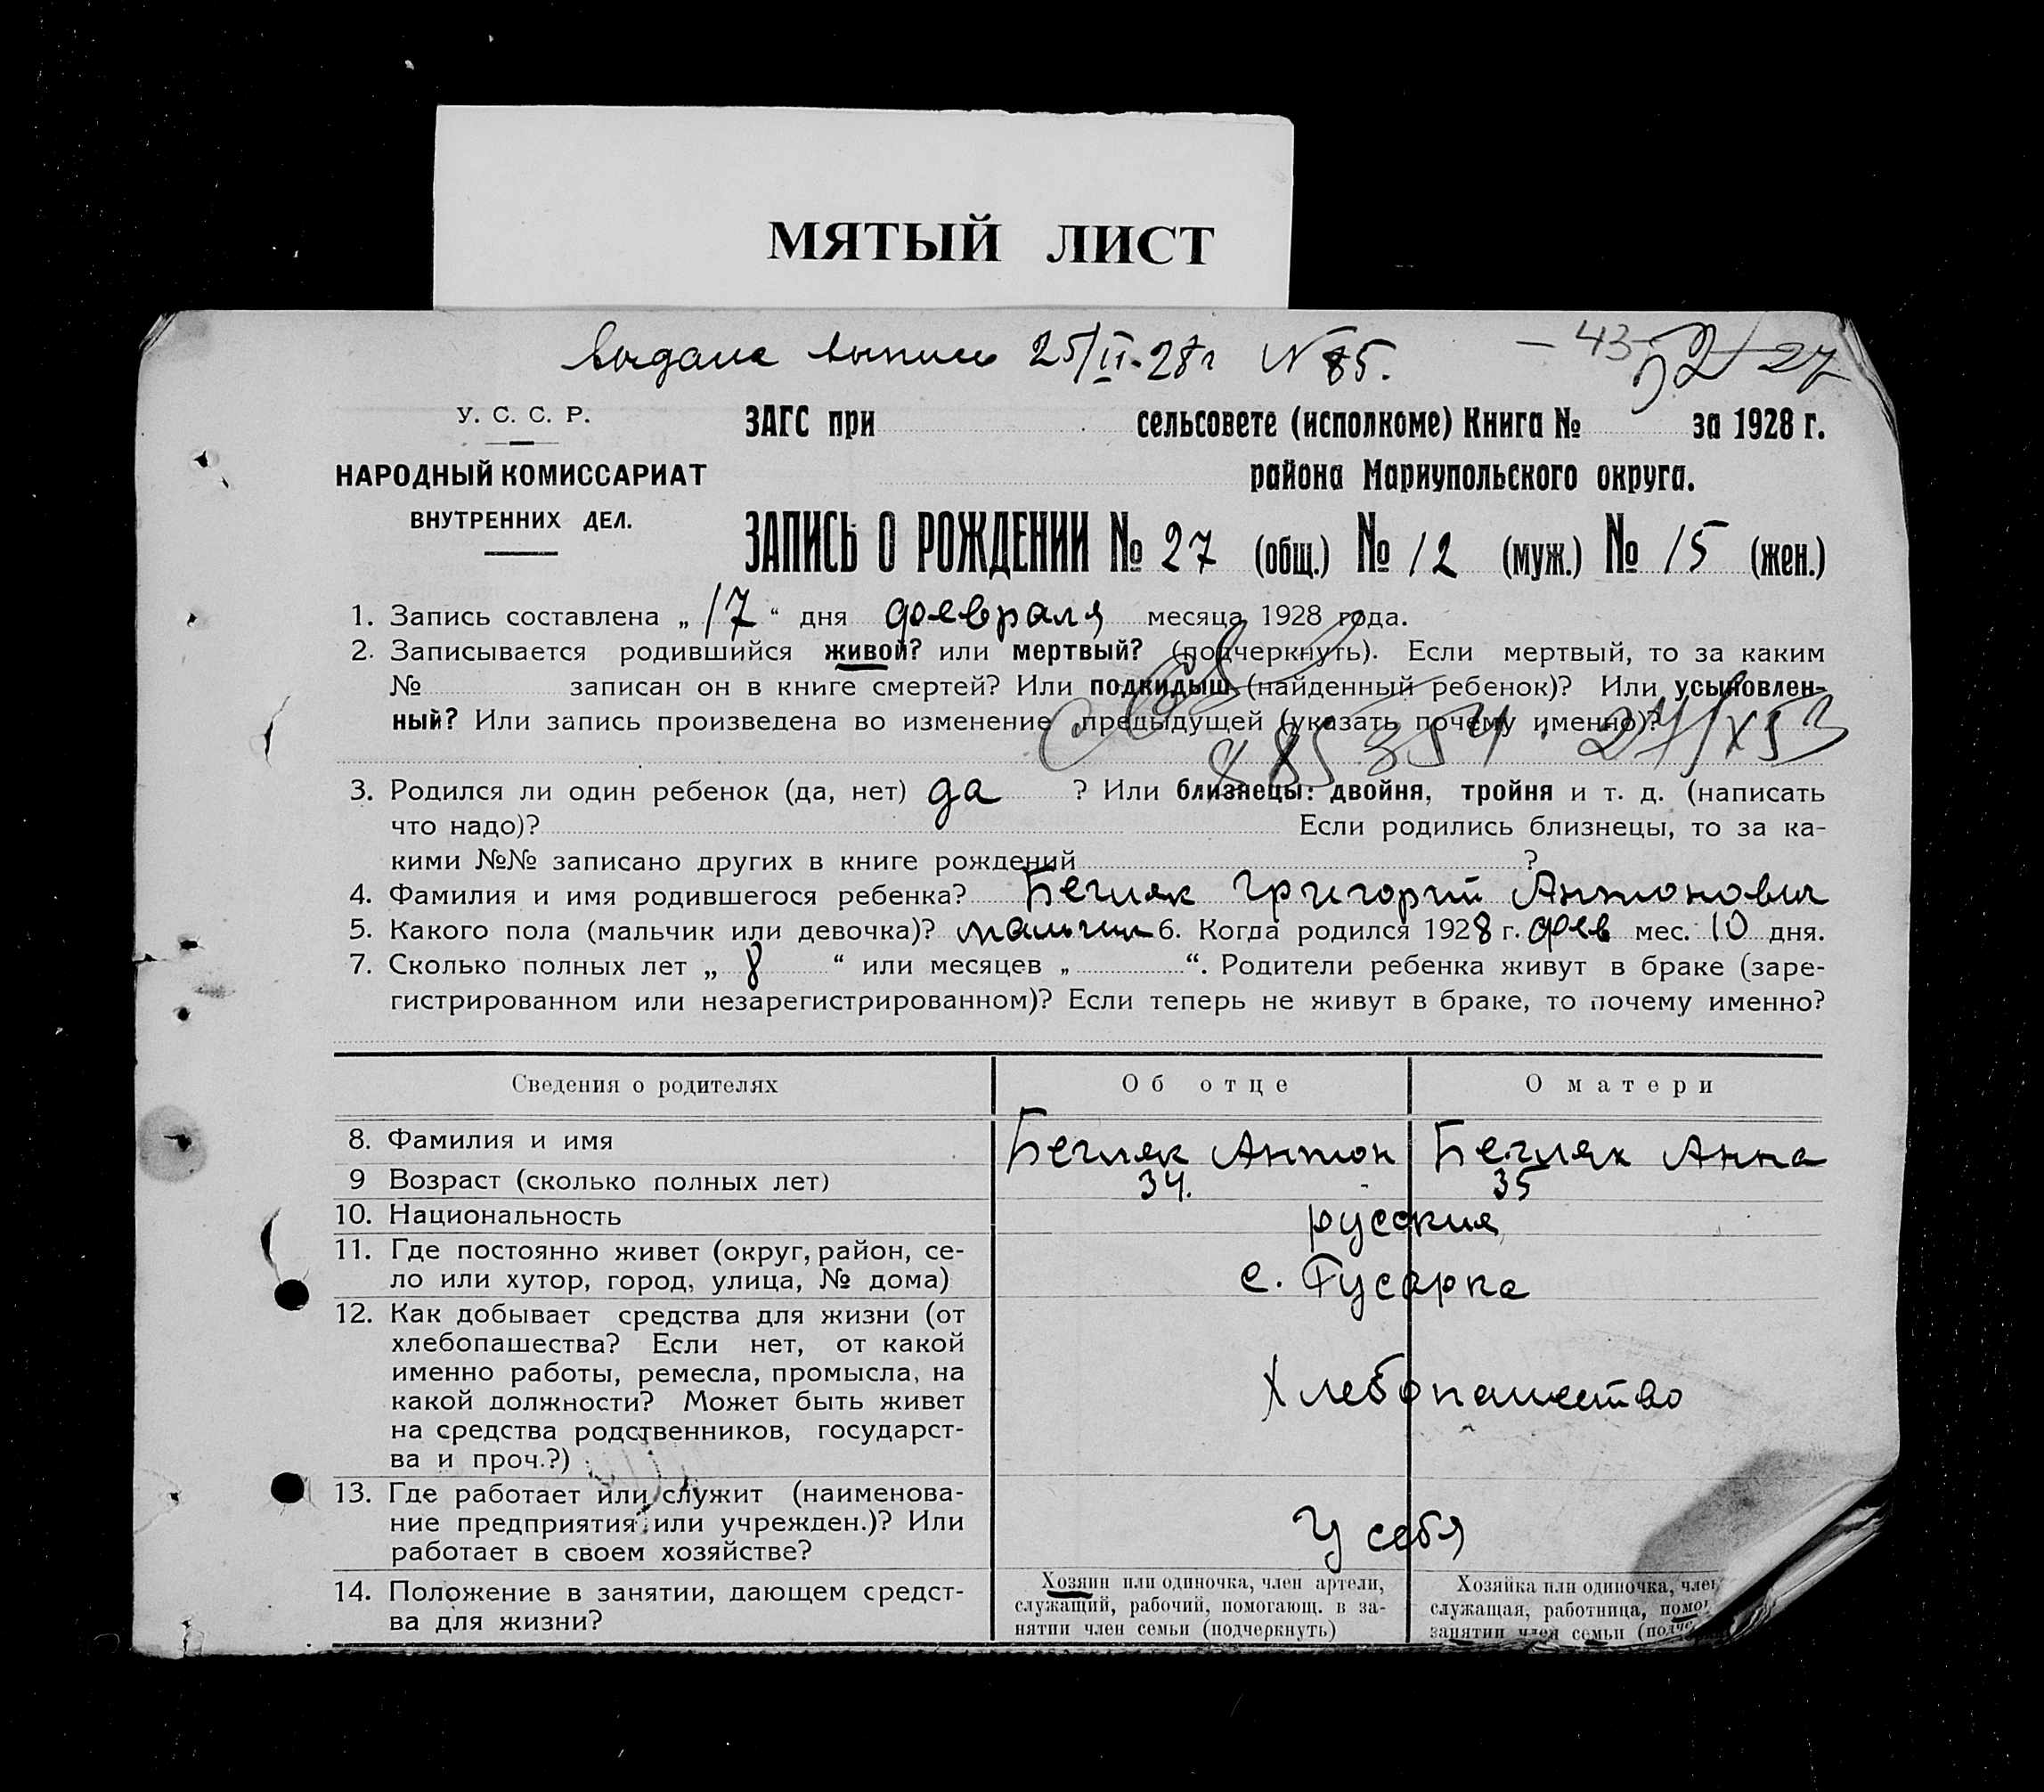 МЯТЫЙ ЛИСТ
выдана выпись 25/II-28 г №85.
-43- 27
У. С. С. Р.
ЗАГС при сельсовете (исполкоме) Книга № за 1928 г.
НАРОДНЫЙ КОМИССАРИАТ
района Мариупольского округа.
ВНУТРЕННИХ ДЕЛ.
ЗАПИСЬ О РОЖДЕНИИ № 27 (общ.) № 12 (муж.) № 15 (жен.)
1. Запись составлена „ 17 “ дня февраля месяца 1928 года.
2. Записывается родившийся живой? или мертвый? (подчеркнуть). Если мертвый, то за каким
№ записан он в книге смертей? Или подкидыш (найденный ребенок)? Или усыновлен-
ный? Или запись произведена во изменение предыдущей (указать почему именно)?
3. Родился ли один ребенок (да, нет) да ? Или близнецы: двойня, тройня и т. д. (написать
что надо)? Если родились близнецы, то за ка-
кими №№ записано других в книге рождений ?
4. Фамилия и имя родившегося ребенка? Бегляк Григорий Антонович
5. Какого пола (мальчик или девочка)? мальчик 6. Когда родился 1928 г. фев мес. 10 дня.
7. Сколько полных лет „ 8 “ или месяцев „ “. Родители ребенка живут в браке (заре-
гистрированном или незарегистрированном)? Если теперь не живут в браке, то почему именно?
Сведения о родителях Об отце О матери
8. Фамилия и имя Бегляк Антон Бегляк Анна
9 Возраст (сколько полных лет) 34. 35
10. Национальность русския
11. Где постоянно живет (округ, район, се-
ло или хутор, город, улица, № дома) с. Гусарка
12. Как добывает средства для жизни (от
хлебопашества? Если нет, от какой
именно работы, ремесла, промысла, на
какой должности? Может быть живет
на средства родственников, государст-
ва и проч.?)
Хлебопашество
13. Где работает или служит (наименова-
ние предприятия или учрежден.)? Или
работает в своем хозяйстве?
У себя
14. Положение в занятии, дающем средст-
ва для жизни?
Хозяин или одиночка, член артели,
служащий, рабочий, помогающ. в за-
нятии член семьи (подчеркнуть)
Хозяйка или одиночка, член
служащая, работница,
занятии член семьи